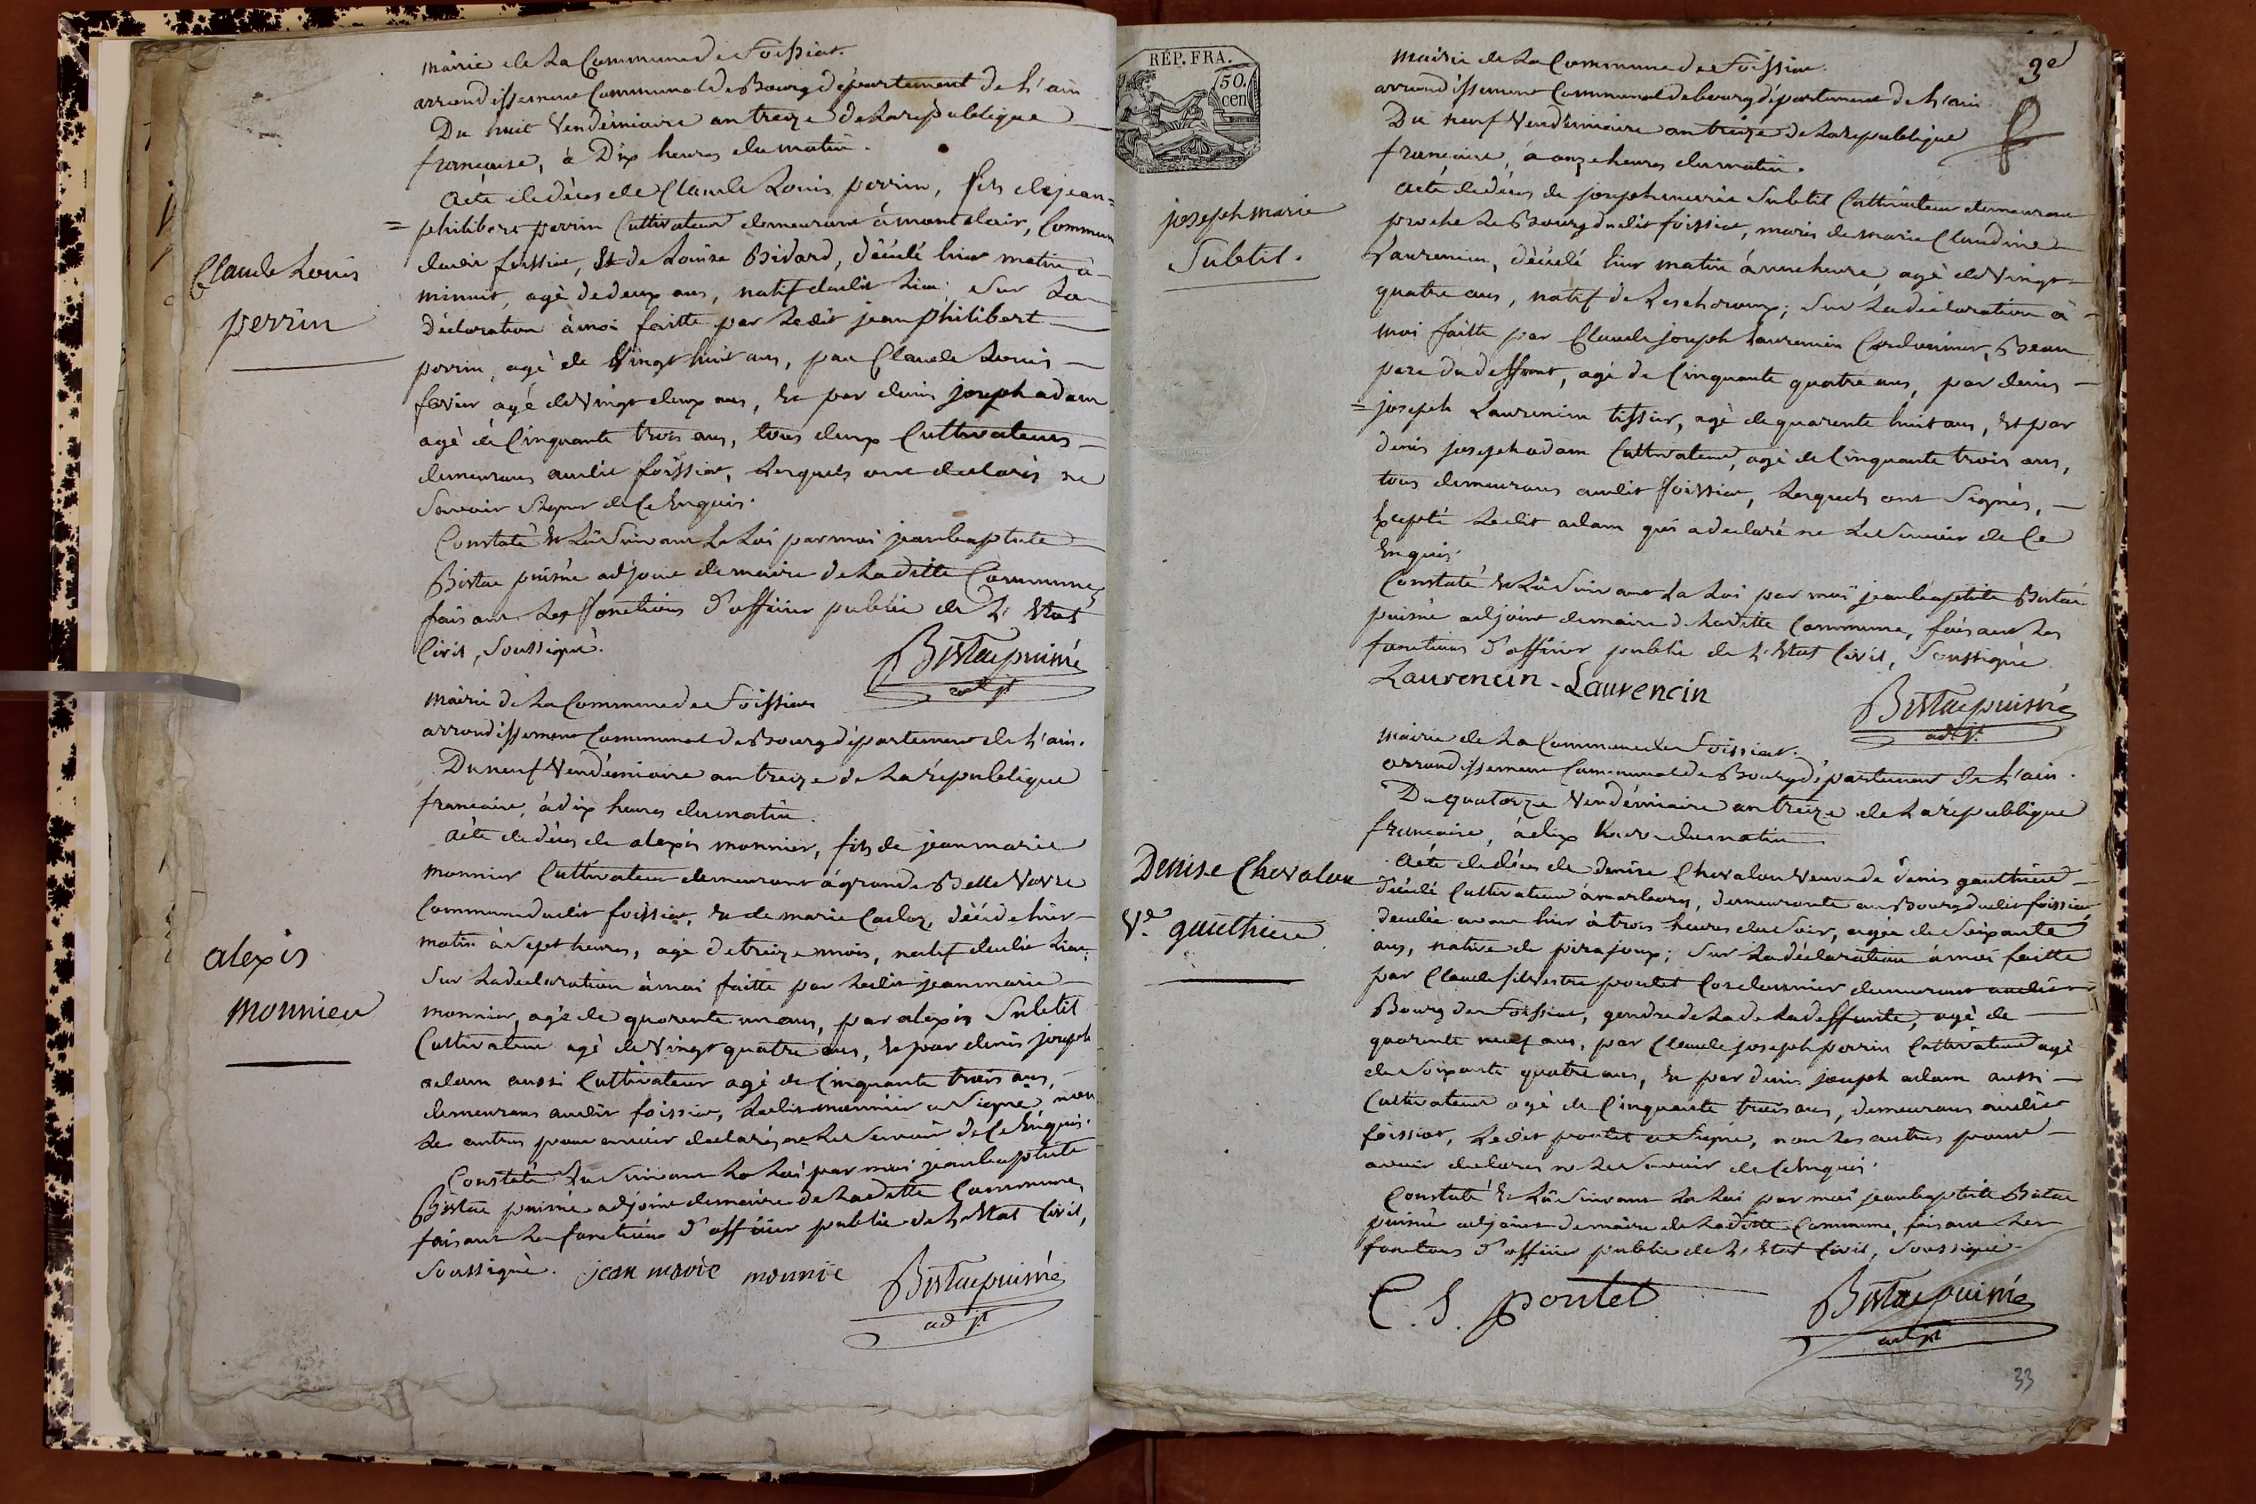 mairie de La Commune de Foissiat.
arrondissement Communal de Bourg département de L'ain
Du huit Vendémiaire an treize de La république
française, à Dix heures du matin.
Acte de décès de Claude Louis perrin, fils de jean=
=philibert perrin Cultivateur demeurant à montclair, Commune
dudit foissiat, Et de Louise Bidard, décédé hier matin à
minuit, agé de deux ans, natif dudit Lieu; Sur La
déclaration à moi faitte par Ledit jean philibert
perrin, agé de Vingt huit ans, par Claude Louis
favier agé de Vingt deux ans, Et par denis joseph adam
agé de Cinquante trois ans, tous deux Cultivateurs
demeurans audit foissiat, Lesquels ont declarés ne
Savoir Signer de Ce Enquis.
Constaté Et Lû Suivant La Loi par moi jean baptiste
Bistac puisné adjoint de maire de La ditte Commune,
faisant Les fonctions d'officier public de L'Etat
Civil, Soussigné.
Bistac puisné
adjt
Claude Louis
perrin
mairie de La Commune de Foissiat
arrondissement Communal de Bourg département de L'ain.
Du neuf Vendémiaire an treize de La république
française, à dix heures du matin.
Acte de décès de alexis monnier, fils de jean marie
monnier Cultivateur demeurant à grande Belle Vavre
Commune dudit foissiat, Et de marie Carloz, décédé hier
matin à Sept heures, agé de treize mois, natif dudit Lieu;
Sur La declaration à moi faitte par Ledit jean marie
monnier, agé de quarente un ans, par alexis Subtit
Cultivateur agé de Vingt quatre ans, Et par denis joseph
adam aussi Cultivateur agé de Cinquante trois ans,
demeurans audit foissiat, Ledit monnier a Signé non
Les autres pour avoir declarés ne Le Savoir de Ce Enquis.
Constaté Et Lu Suivant La Loi par moi jean baptiste
Bistac puisné adjoint de maire de La ditte Commune,
faisant Les fonctions d'officier public de L'Etat Civil,
Soussigné. jean marie monnie Bistac puisné
adjt
alexis
monnier
RÉP. FRA.
50.
cen
3e
mairie de La Commune de Foissiat.
arrondissement Communal de bourg département de L'ain
Du neuf Vendémiaire an treize de La republique
française, à onze heures du matin.
Acte de décès de joseph marie Subtit Cultivateur demeurant
proche Le Bourg dudit foissiat, maris de marie Claudine
Laurencin, décédé hier matin à une heure, agé de Vingt
quatre ans, natif de Lescheroux; Sur La déclaration à
moi faitte par Claude joseph Laurencin Cordonnier, Beau
pere du deffunt, agé de Cinquante quatre ans, par denis
=joseph Laurencin tissier, agé de quarente huit ans, Et par
denis joseph adam Cultivateur, agé de Cinquante trois ans,
tous demeurans audit foissiat, Lesquels ont Signés,
Excepté Ledit adam qui a declaré ne Le Savoir de Ce
Enquis.
Constaté Et Lû Suivant La Loi par moi jean baptiste Bistac
puisné adjoint de maire de La ditte Commune, faisant Les
fonctions d'officier public de L'Etat Civil, Soussigné.
Laurencin - Laurencin
Bistac puisné
adjt
joseph marie
Subtit.
mairie de La Commune de Foissiat.
arrondissement Communal de Bourg département de L'ain.
Du quatorze Vendémiaire an treize de La république
française, à dix heures du matin
Acte de décès de denise Chevalon Veuve de denis gauthier
décédé Cultivateur à marbourg, demeurante au Bourg dudit foissiat
decedée avant hier à trois heures du Soir, agée de Soixante
ans, native de pirajoux; Sur La déclaration à moi faitte
par Claude Silvestre poulet Cordonnier demeurant audit
Bourg de Foissiat, gendre de La de La deffunte, agé de
quarente neuf ans, par Claude joseph perrin Cultivateur agé
de Soixante quatre ans, Et par denis joseph adam aussi
Cultivateur agé de Cinquante trois ans, demeurans audit
foissiat, Ledit poulet a Signé, non Les autres pour
avoir declarés ne Le Savoir de Ce Enquis.
Constaté Et Lû Suivant La Loi par moi jean baptiste Bistac
puisné adjoint de maire de La ditte Commune, faisant Les
fonctions d'officier public de L'Etat Civil, Soussigné.
C. S. poulet
Bistac puisné
adjt
Denise Chevalon
Ve. gauthier
33